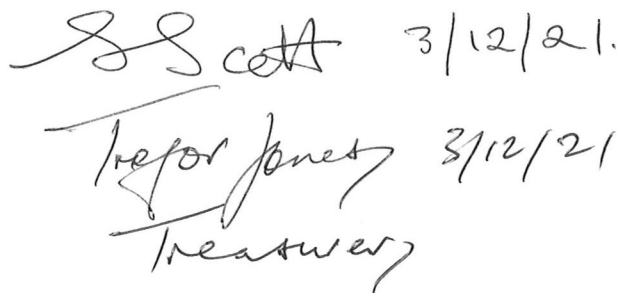 S Scott 3/12/21.
Trefor Jones 3/12/21
Treasurer